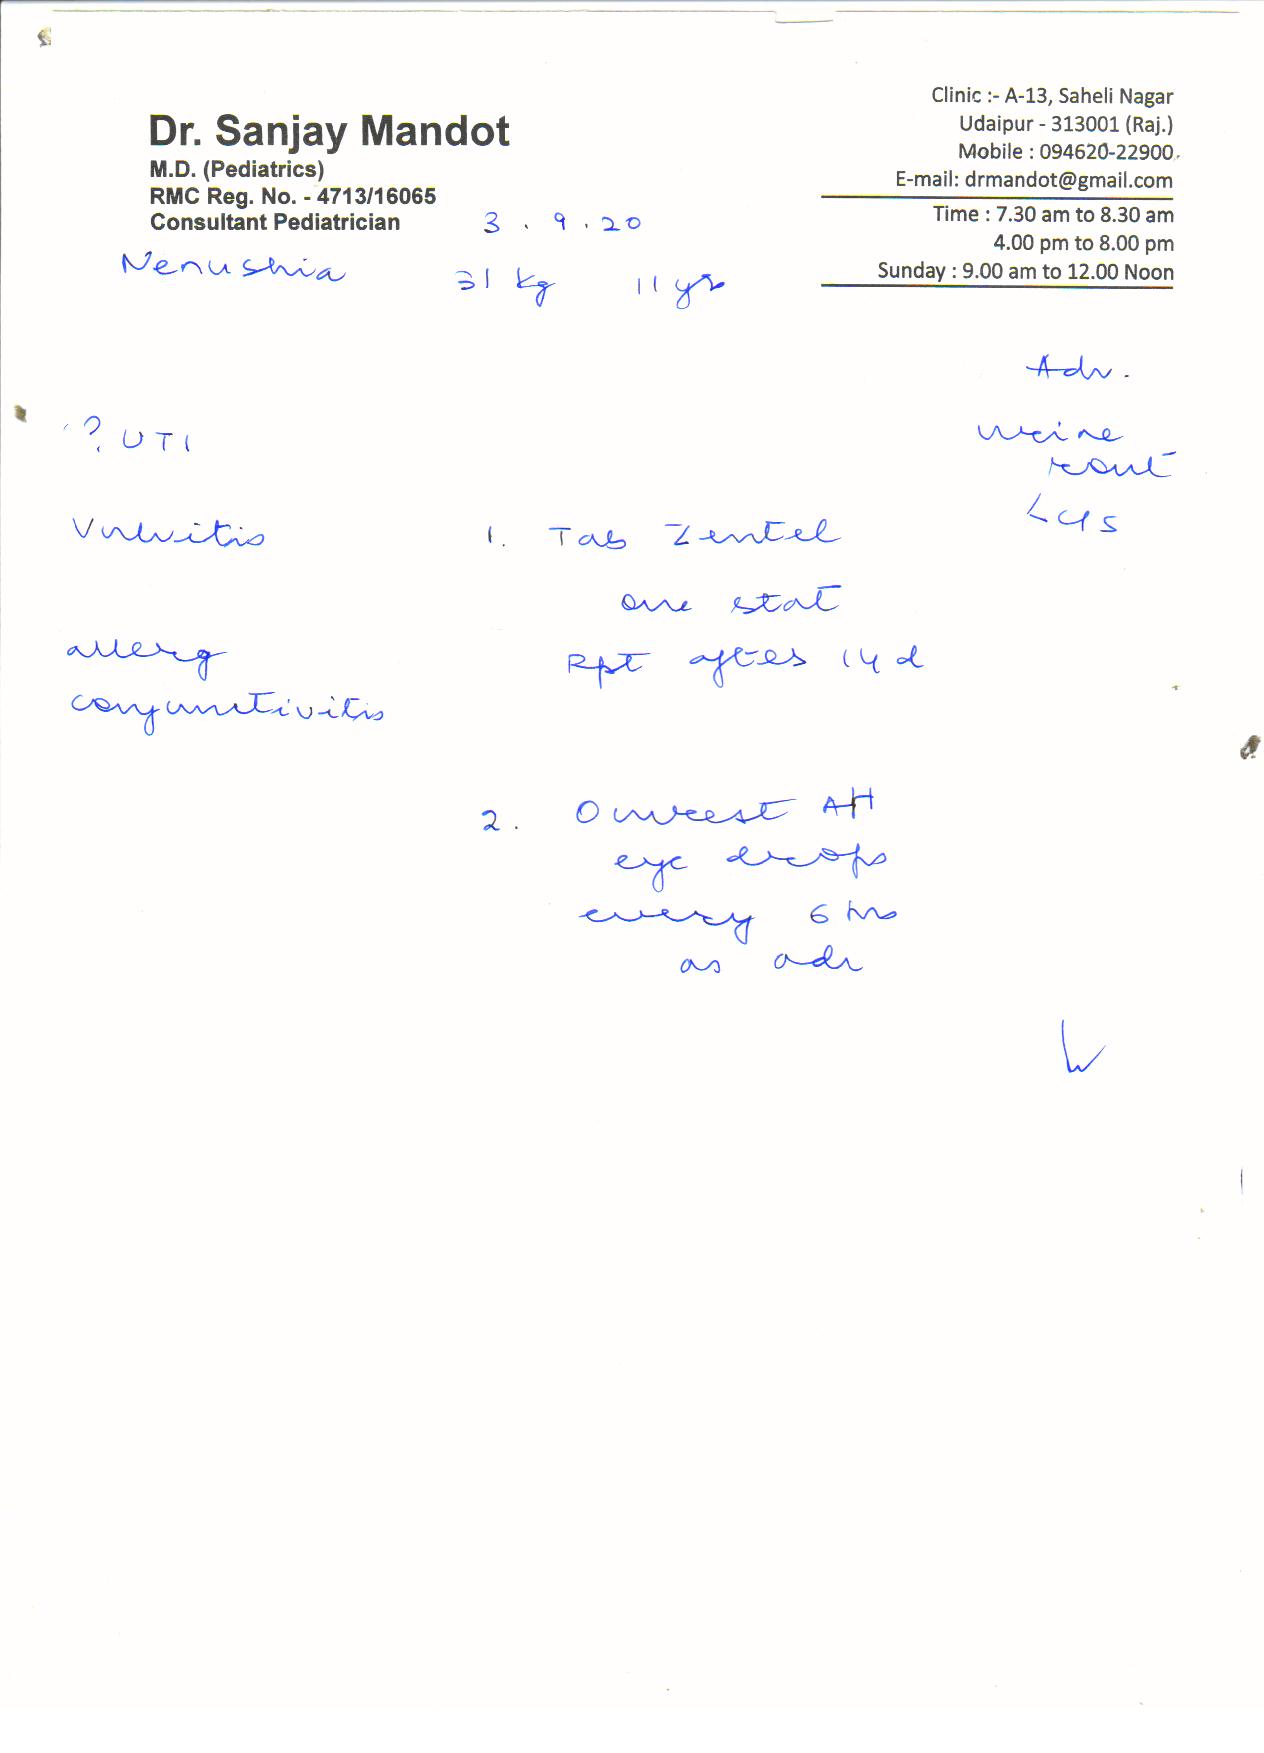 Dr. Sanjay Mandot
M.D. (Pediatrics)
RMC Reg. No. - 4713/16065
Consultant Pediatrician
Clinic :- A-13, Saheli Nagar
Udaipur - 313001 (Raj.)
Mobile : 094620-22900
E-mail: drmandot@gmail.com
Time : 7.30 am to 8.30 am
4.00 pm to 8.00 pm
Sunday : 9.00 am to 12.00 Noon
3 . 9 . 20
Nenushia 31 kg 11 yr
Adv.
? UTI
Urine
rout
< C/S
Vulvitis
1. Tab Zentel
one stat
Rpt after 14 d
allerg
conjunctivitis
2. AH
eye drops
every 6 hrs
as adv